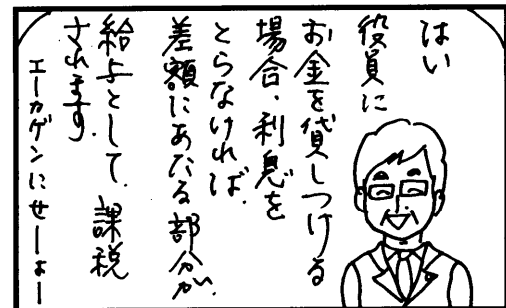 はい
役員に
お金を貸しつける
場合、利息を
とらなければ、
差額にあたる部分が、
給与として、課税
されます。
エーカゲンにせーよー